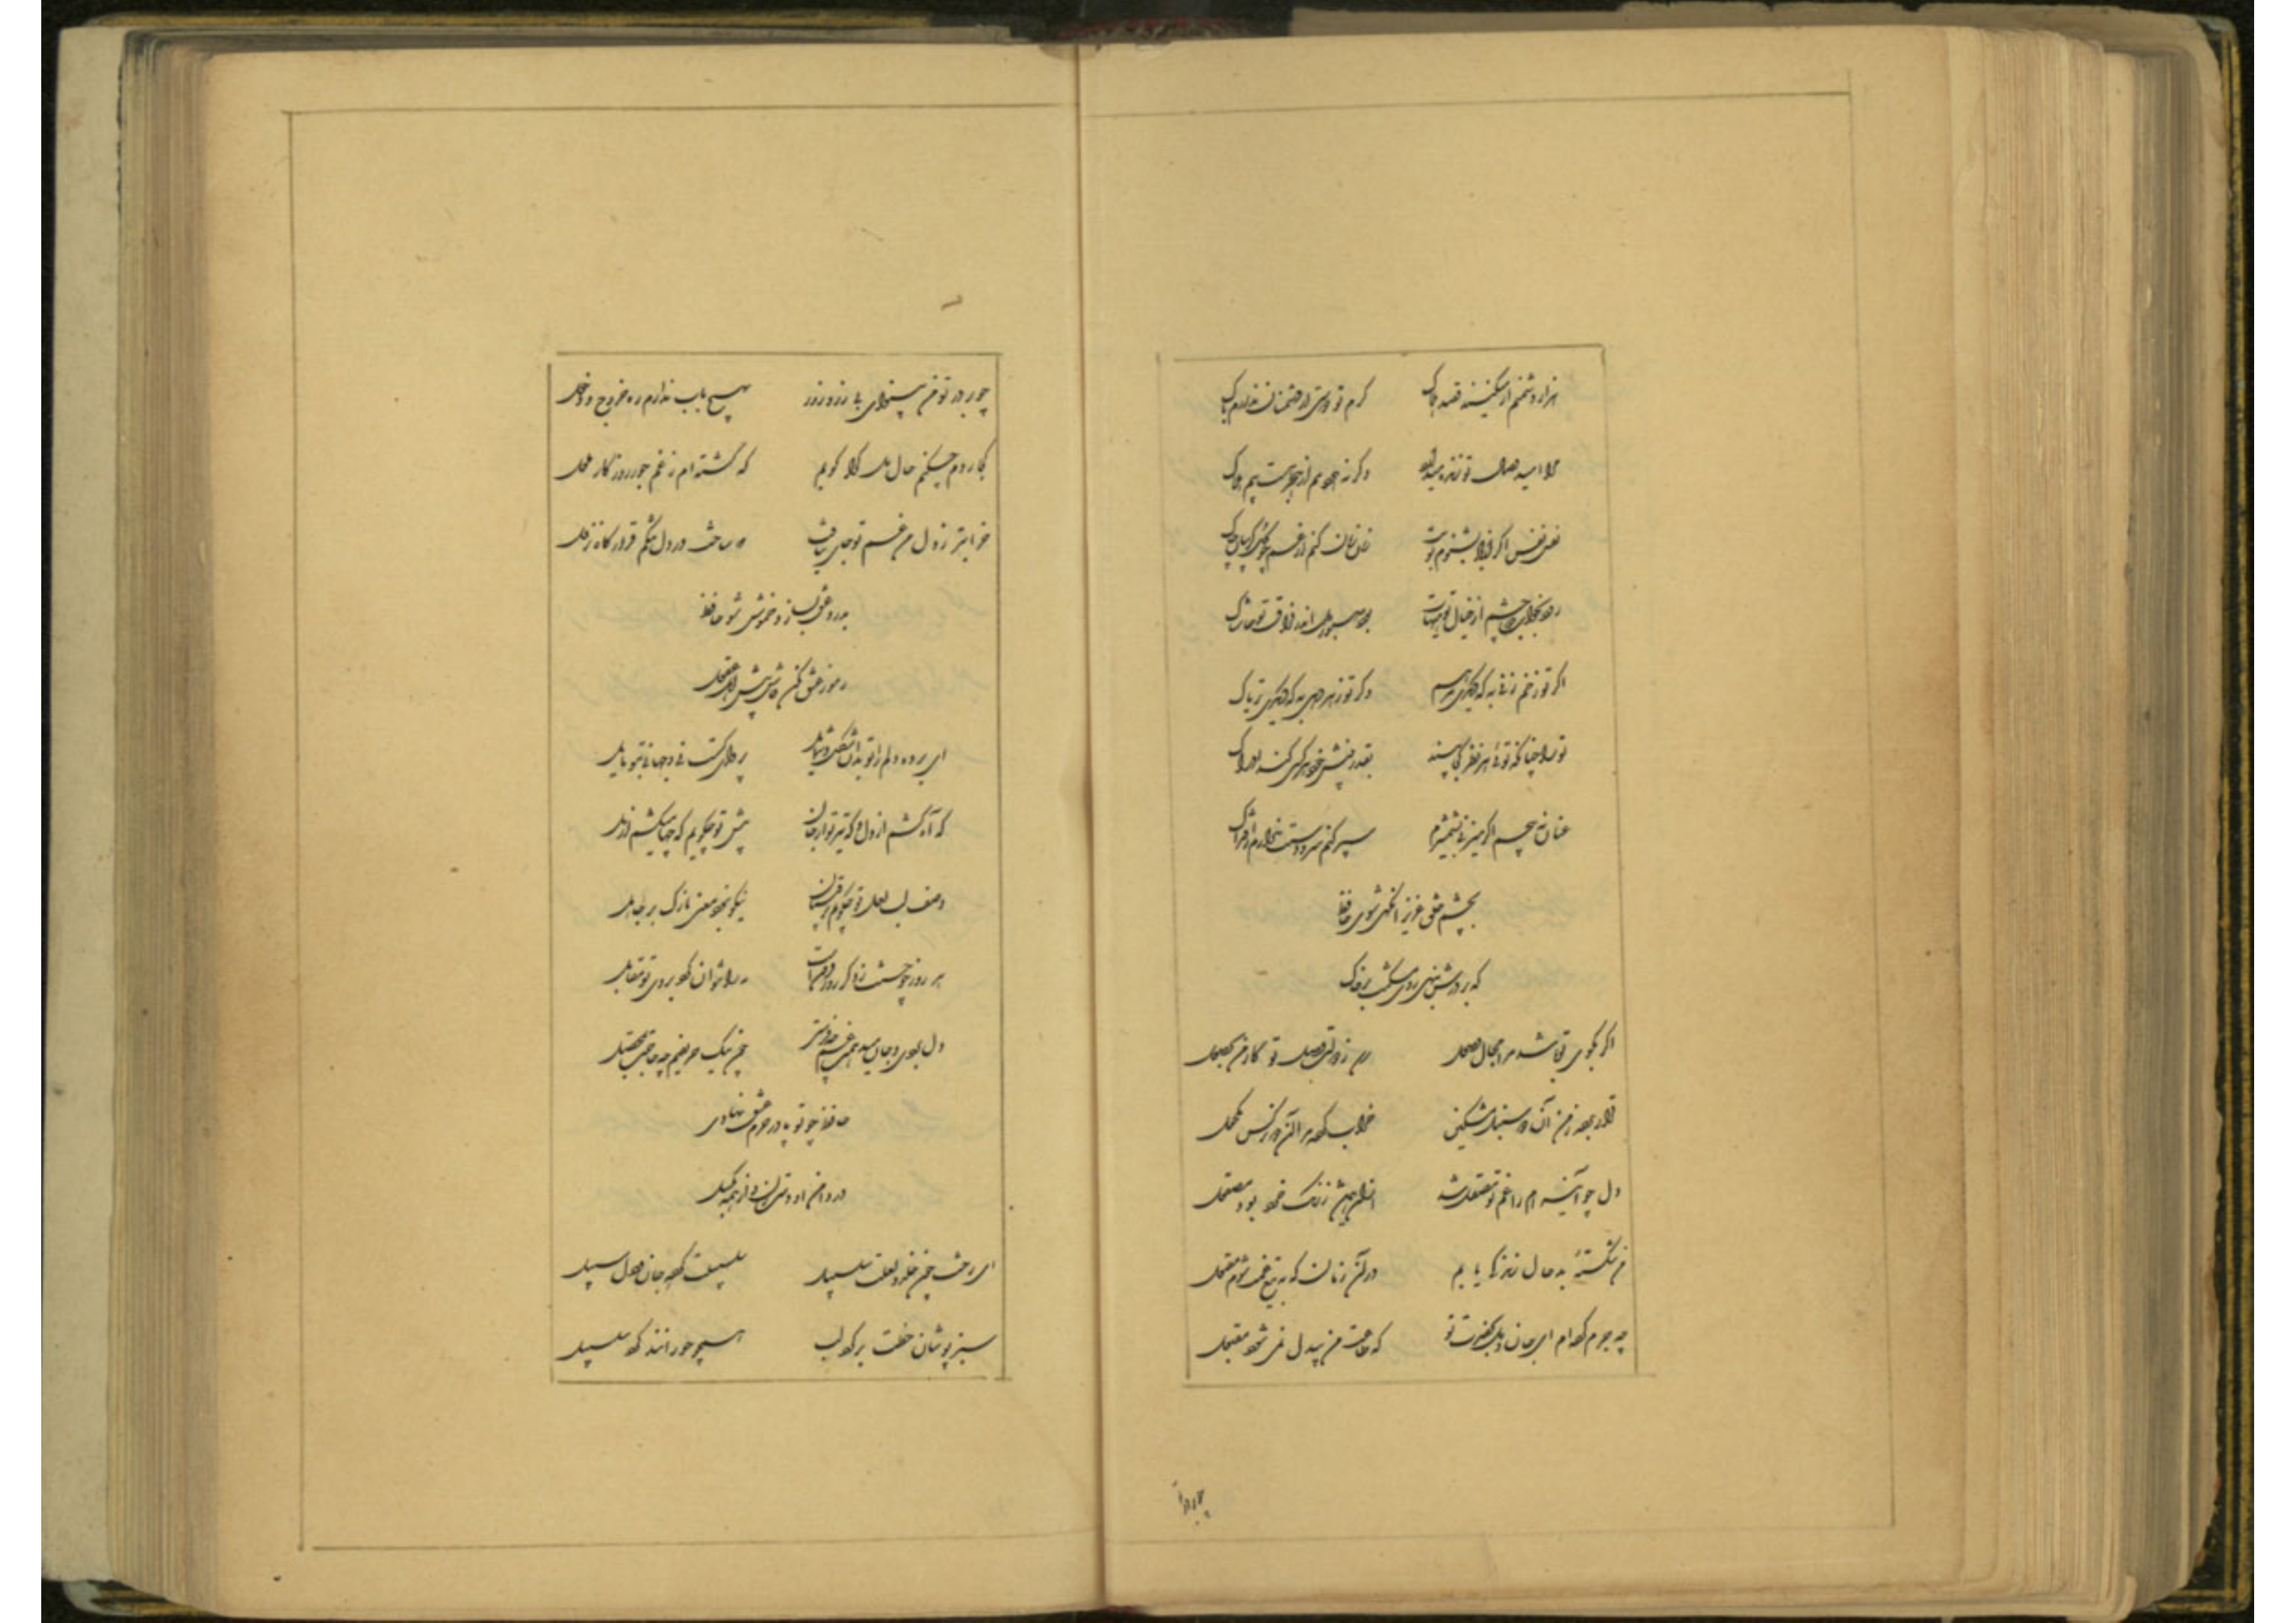 هزار دشمنم ار میکنند قصد هلاک گرم تو دوستی از دشمنان ندارم باک
مرا امید وصال تو زنده میدارد وگرنه هر دمم از هجر تست بیم هلاک
نفس نفس اگر از باد نشنوم بویت زمان زمان کنم از غم چو گل گریبان چاک
رود بخواب دو چشم از خیال تو هیهات بود صبور دل اندر فراق تو حاشاک
اگر تو زخم زنی به که دیگری مرهم وگر تو زهر دهی به که دیگری تریاک
ترا چنانکه توئی هر نظر کجا بیند بقدر بینش خود هر کسی کند ادراک
عنان نپیچم اگر میزنی بشمشیرم سپر کنم سر و دستت ندارم از فتراک
بچشم خلق عزیز آنگهی شوی حافظ
که بر درش بنهی روی مسکنت بر خاک
اگر بکوی تو باشد مرا مجال وصول رسد ز دولت وصل تو کار من بحصول
قرار برده ز من آن دو سنبل مشکین خراب کرده مرا آن دو نرگس مکحول
دل چو آینه ام را غم تو مصقل شد
من شکسته بدحال زندگی یابم در آن زمان که به تیغ غمت شوم مقتول
چه جرم کرده ام ای جان و دل بحضرت تو که طاعت من بیدل نمی شود مقبول
چو بر در
چو بر در تو من بینوای بی زر و زور بهیچ باب ندارم ره خروج و دخول
کجا روم چکنم حال دل کرا گویم که گشته ام ز غم جور روزگار ملول
خرابتر ز دل من غم تو جای نیافت که ساخت در دل تنگم قرارگاه نزول
بدرد عشق بساز و خموش شو حافظ
رموز عشق مکن فاش پیش اهل عقول
ای برده دلم را تو بدان شکل و شمایل پروای کست نی و جهانی بتو مایل
گه آه کشم از دل و گه تیر تو از جان پیش تو چگویم که چها میکشم از دل
وصف لب لعل تو چگویم برقیبان نیکو نبود معنی نازک بر جاهل
هر روز چو حسنت ز دگر روز فزون است مه را نتوان کرد بروی تو مقابل
دل بردی و جان میدهمت غم چه فرستی چون نیک غمینیم چه حاجت بمحصل
حافظ چو تو پا در حرم عشق نهادی
در دامن او دست زن و از همه بگسل
ای رخت چون خلد و لعلت سلسبیل سلسبیلت کرده جان و دل سبیل
سبزپوشان خطت بر گرد لب همچو مورانند گرد سلسبیل